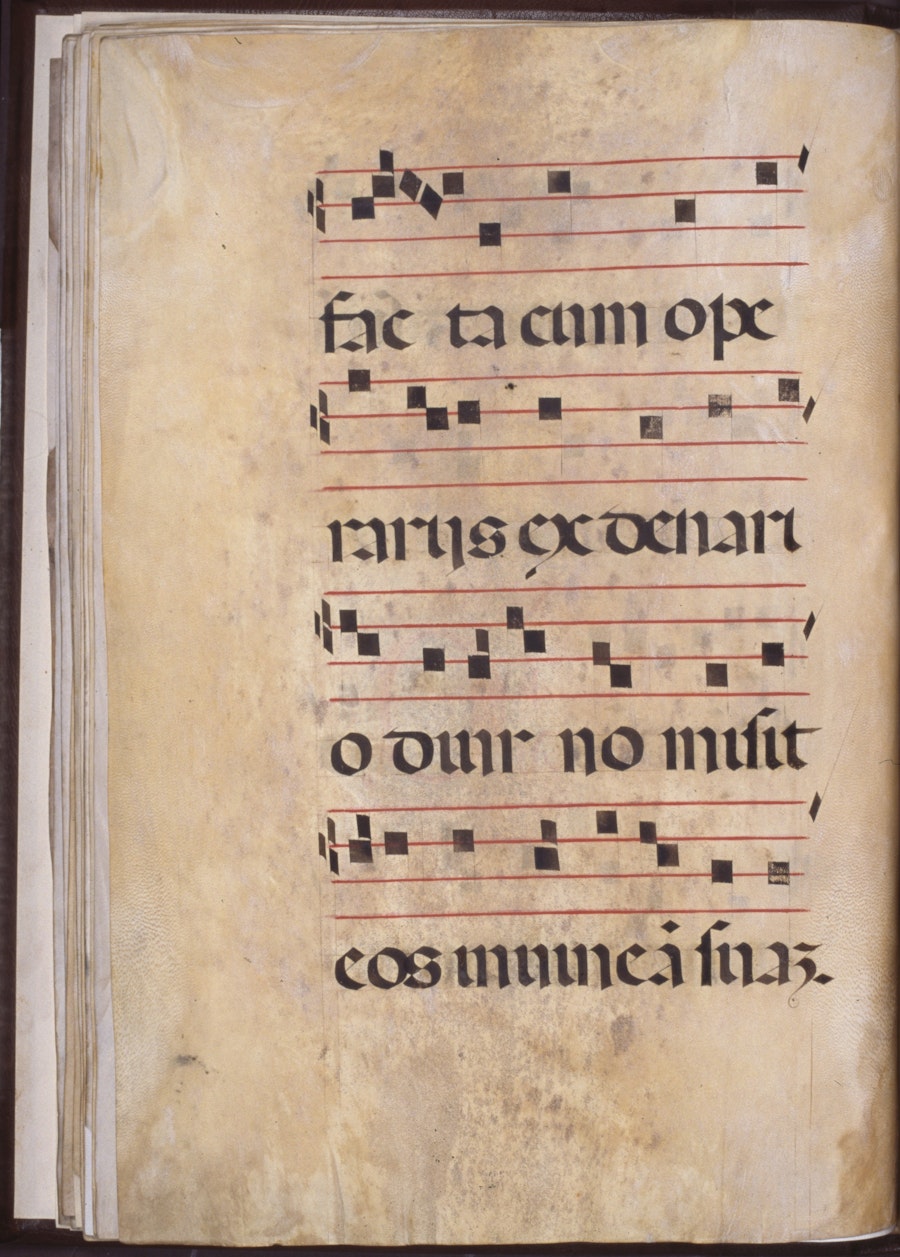 fac ta cum ope
rarijs ex denari
o diur no miſit
eos in uineā ſuaʒ.